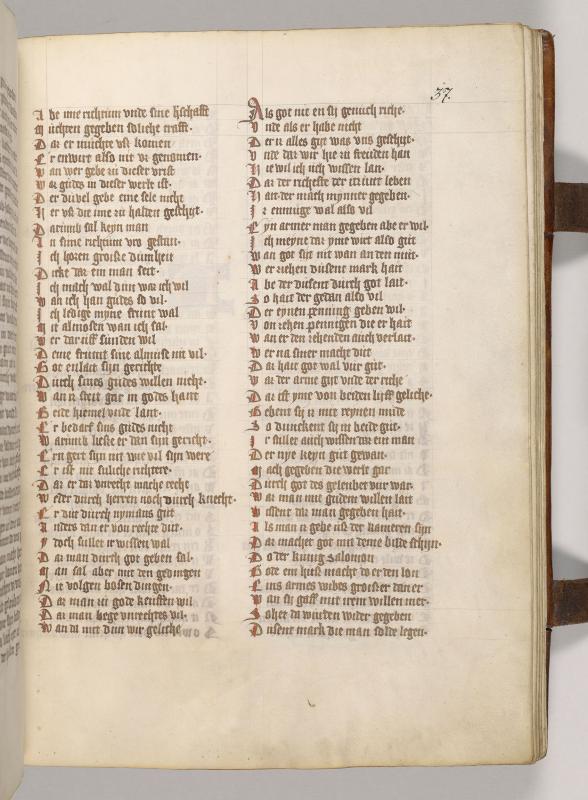 37.
Abe ime richtum vnde sine h'schafft
Mochten gegeben soliche crafft.
Daz er muchte vsz komen
Er enwirt also nit vz genomen.
Wan wer gebe zu dieser vrist
Waz gudes in dieser werlt ist.
Der duvel gebe eine sele nicht
Her vsz die ime zu halden geschyt.
Darumb sal keyn man
An sime richtum vro gestan.
Ich horen groisse dumheit
Dicke daz ein man seit.
Ich mach wal dun waz ich wil
Wan ich han gudes so vil.
Ich ledige myne sunde wal
Mit almosen wan ich sal.
Wer dar uff sunden wil
Deme frumt sine almuse nit vil.
Got enlait sin gerichte
Durch sines gudes willen nichte.
Wan it steit gar in godes hant
Beide hiemel vnde lant.
Er bedarf sins gudes nicht
Warumb liesse er dan sijn gericht.
Ern gert sijn nit wie vil sijn were
Er ist nit suliche richtere.
Daz er daz vnrecht mache recht
Weder durch herren noch durch knecht.
Er dut durch nymans gut
Anders dan er von rechte dut.
Ydoch sullet ir wissen wal
Daz man durch got geben sal.
Man sal aber mit den gedingen
Nit volgen bosen dingen.
Daz man zu gode keuffen wil
Daz man bege vnrechtes vil.
Wan da mit dun wir geliche
Als got nit en sij genuch riche.
Vnde als er habe nicht
Der in alles gut was vns geschyt.
Vnde daz wir hie zu freuden han
Nie wil ich uch wissen lan.
Daz der richeste der itzunt leben
Hait der mach mynner gegeben.
Ir enmuge wal also vil
Eyn armer man gegeben abe er wil.
Ich meyne daz yme wirt also gut
Wan got siet nit wan an den mut.
Wer riehen dusent mark hait
Abe der diesent durch got lait.
So hait der gedan also vil
Der eynen penning geben wil.
Von zehen pennigen die er hait
Wan er den zehenden auch verlait.
Wer na siner macht dut
Daz hait got wal vur gut.
Waz der arme git vnde der riche
Daz ist yme von beiden lyff geliche.
Gebent sij it mit reynen mude
So dunckent sij in beide gut.
Ir sullet auch wissen daz ein man
Der nye keyn gut gewan.
Mach gegeben die werlt gar
Durch got des geleubet vur war.
Waz man mit gudem willen lait
Wissent daz man gegeben hait.
Als man it gebe usz der kameren sijn
Daz machet got mit deme bilde schijn.
Do der kunig Salomon
Gode ein husz macht do er den lon
Eins armes wibes groisser dan er
Wan sij gaff mit irem willen mer.
So het da widden wider gegeben
Dusent mark die man solde legen.